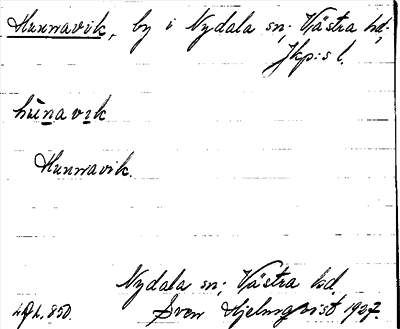 Hunnavik, by i Nydala sn; Västra hd,
Jkp:s l.
hùnavik
Hunnavik.
Nydala sn; Västra hd.
Sven Hjelmqvist 1927.